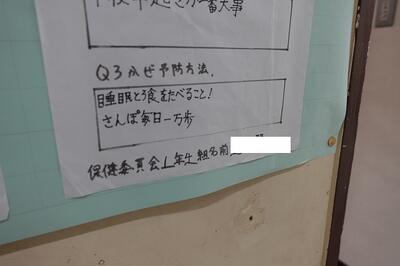 早起きが一番大事
Q3かぜ予防方法.
睡眠とう食をたべること!
さんぽ毎日一万歩
保健委員会1年生 組名前